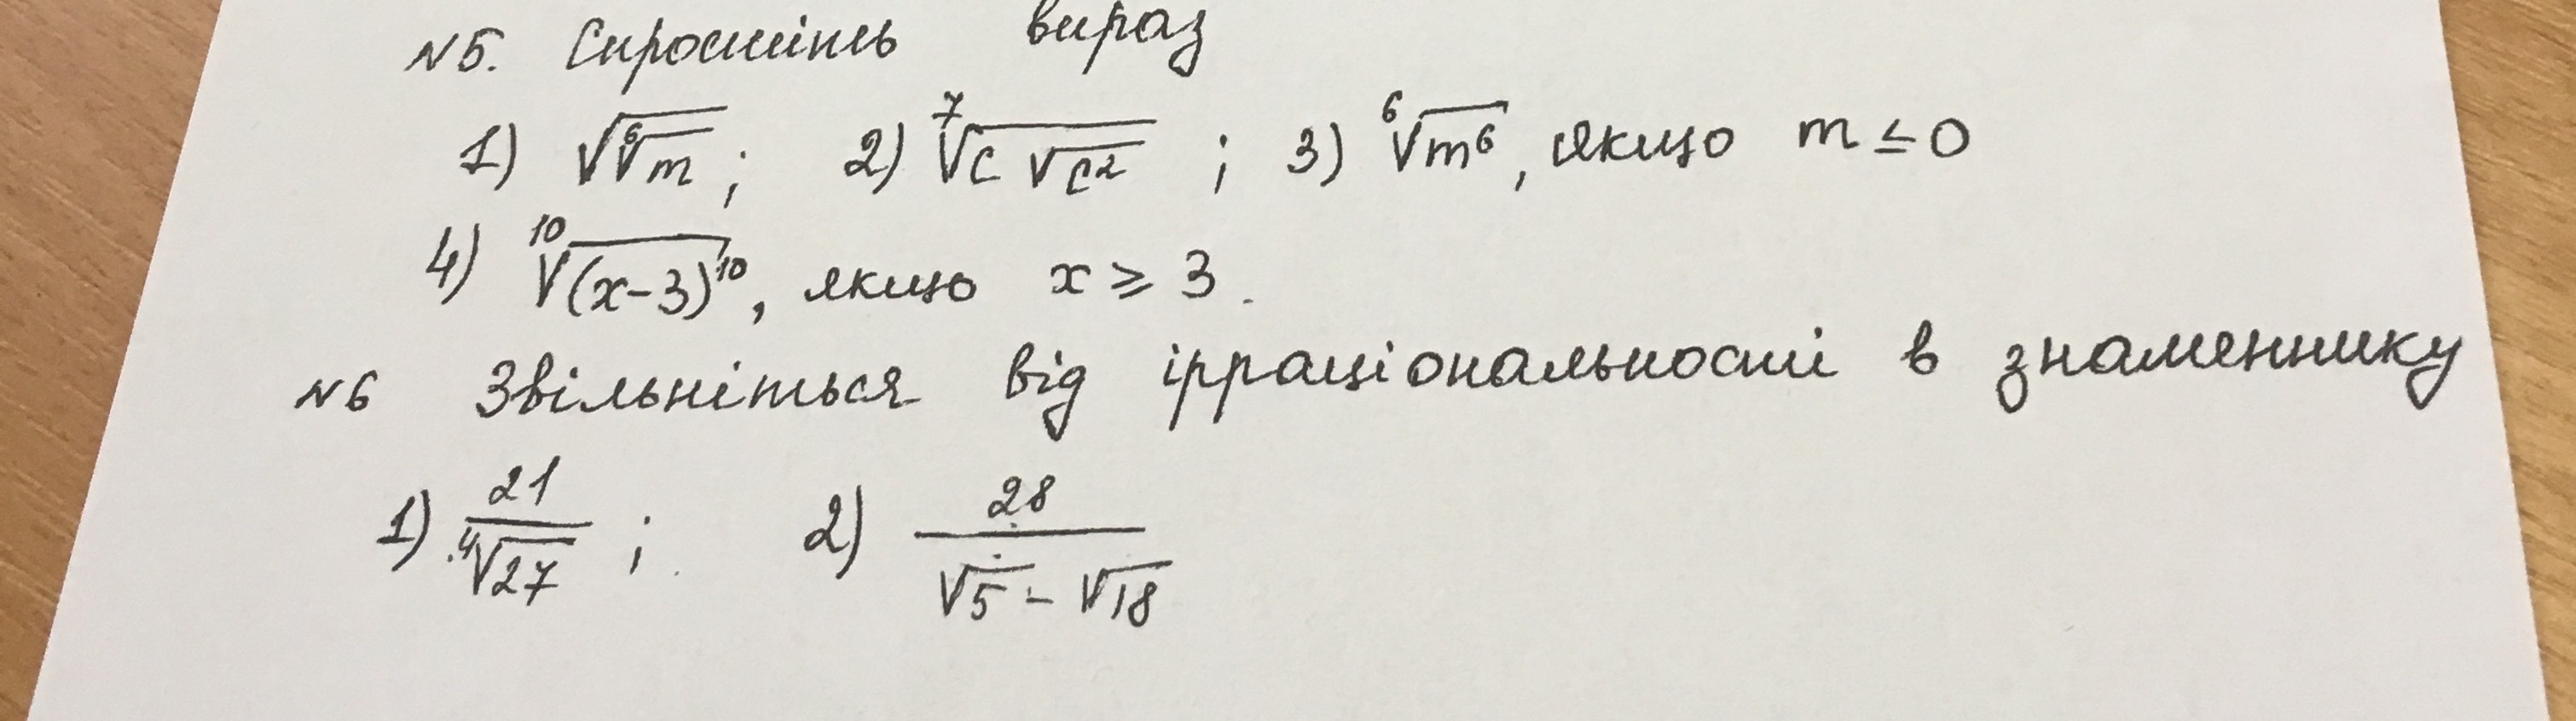 №5. Спростіть вираз
1) √(⁶√m) ; 2) ⁷√(c √(c²)) ; 3) ⁶√(m⁶), якщо m ≤ 0
4) ¹⁰√((x-3)¹⁰), якщо x ⩾ 3.
№6 Звільніться від ірраціональності в знаменнику
1) 21/⁴√27 ; 2) 28/(√5 - √18)